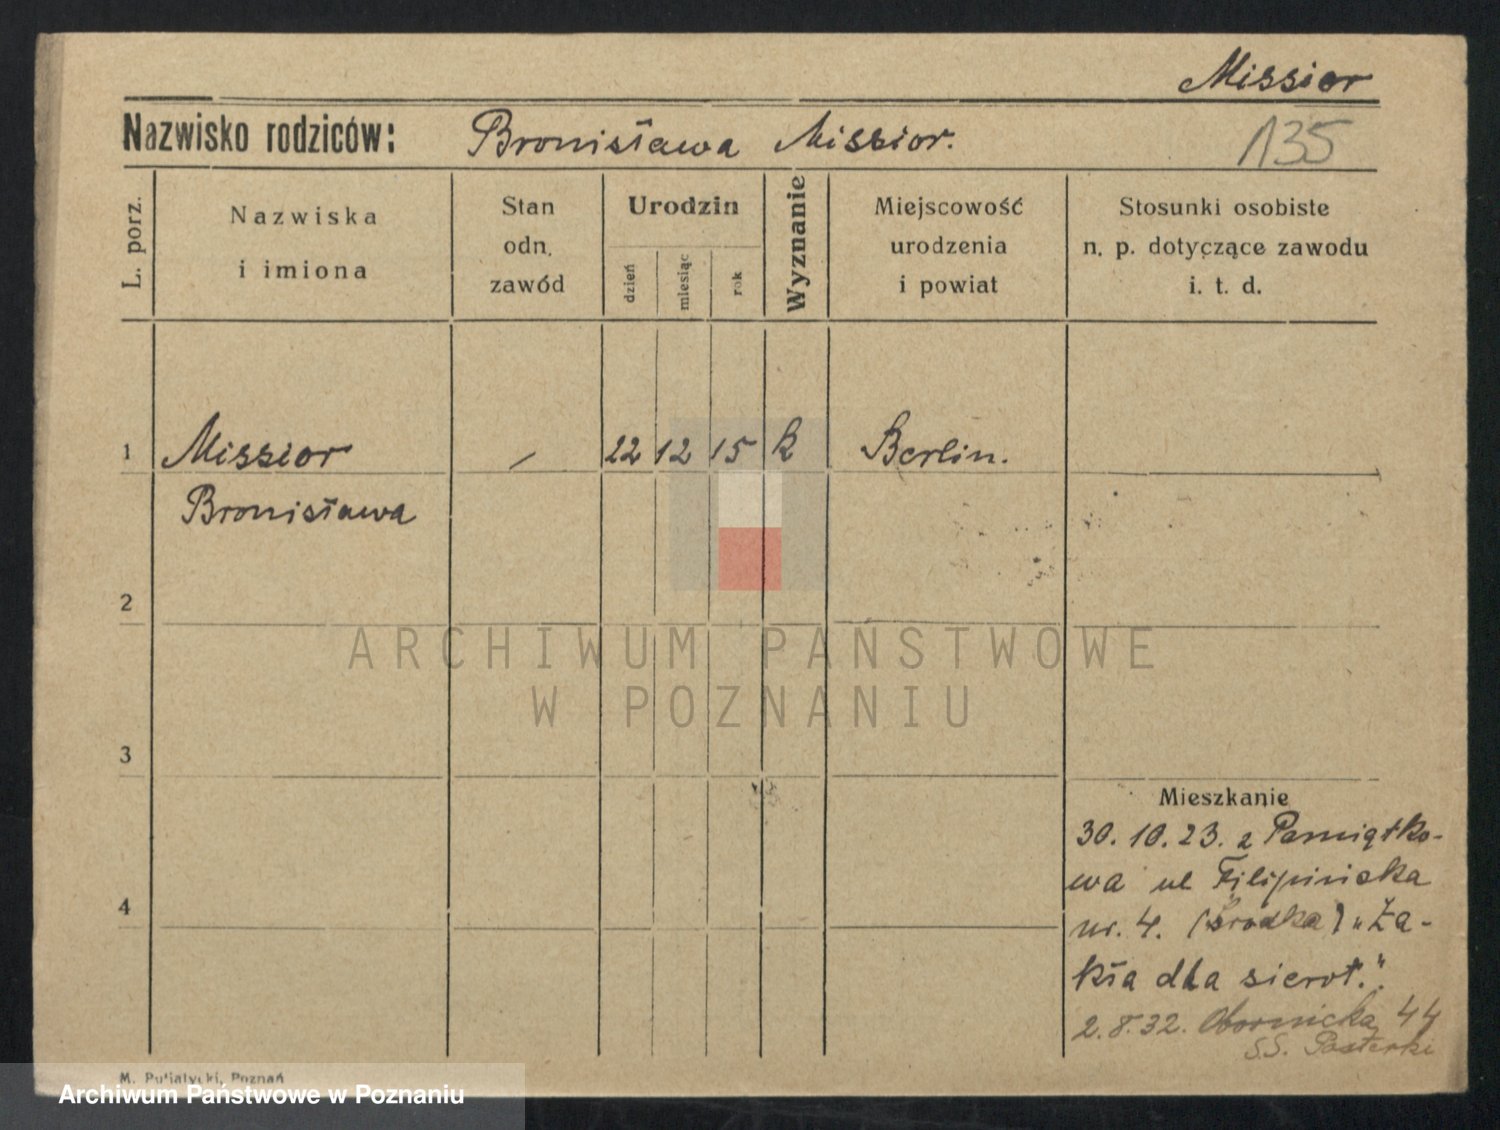 Missior
Nazwisko rodziców: Bronisława Missior.
135
L. porz.
Nazwiska
i imiona
Stan
odn.
zawód
Urodzin
dzień
miesiąc
rok
Wyznanie
Miejscowość
urodzenia
i powiat
Stosunki osobiste
n. p. dotyczące zawodu
i. t. d.
1 Missior / 22 12 15 k Berlin.
Bronisława
2
3
4
Mieszkanie
30. 10. 23. z Pamiątko-
wa ul Filipińska
nr. 4. (Środka) „Za-
kła dla sierot.“.
2. 8. 32. Obornicka 44
S.S. Pasterki
ARCHIWUM PAŃSTWOWE
W POZNANIU
M. Putiatycki, Poznań
Archiwum Państwowe w Poznaniu